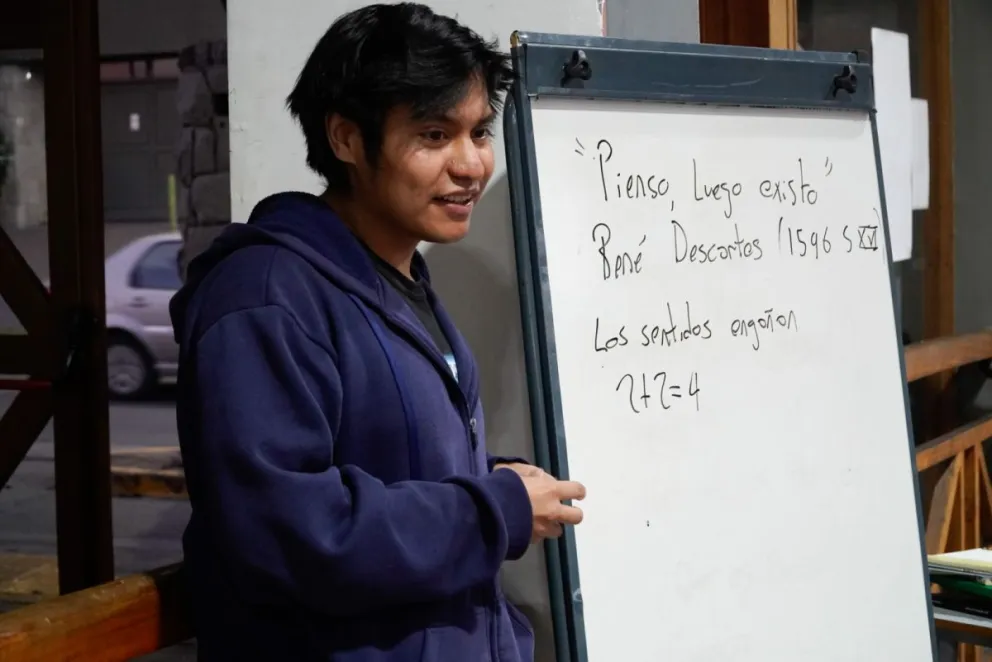 "Pienso, Luego existo"
René Descartes (1596 S XV)
Los sentidos engañan
2+2=4